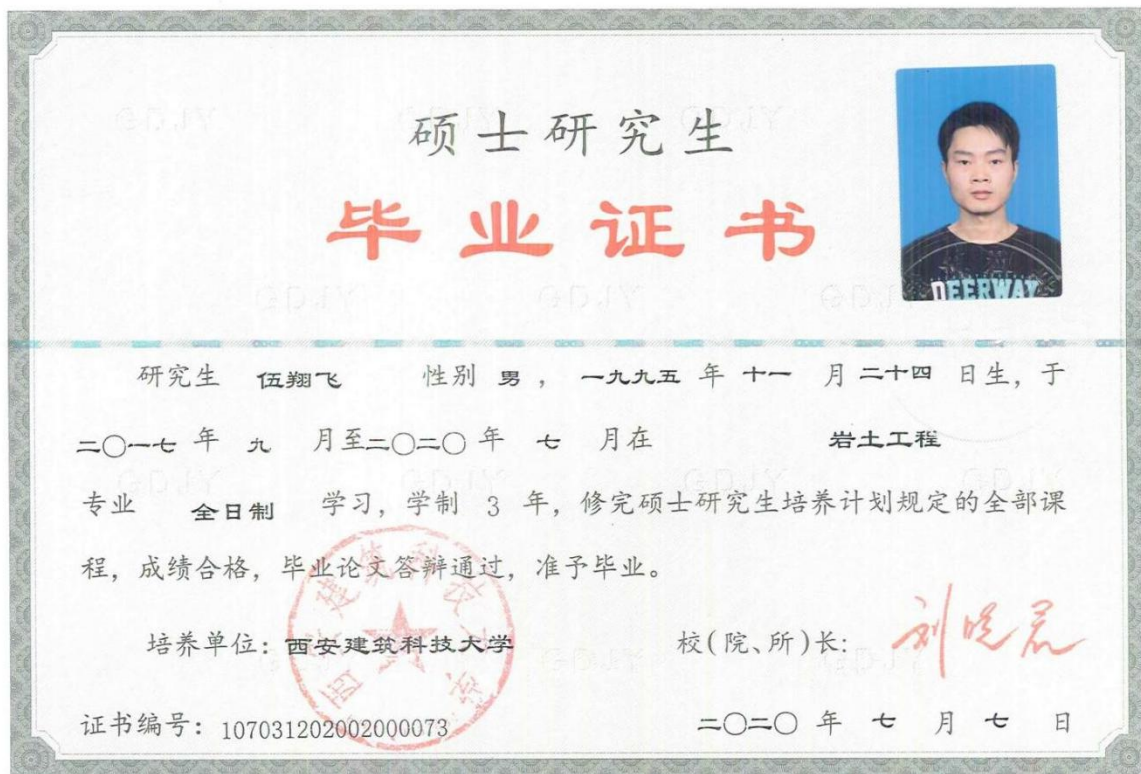 硕士研究生
毕业证书
DEERWAY
研究生 伍翔飞 性别 男 ，一九九五 年 十一 月 二十四 日生，于
二〇一七 年 九 月至二〇二〇 年 七 月在 岩土工程
专业 全日制 学习，学制 3 年，修完硕士研究生培养计划规定的全部课
程，成绩合格，毕业论文答辩通过，准予毕业。
培养单位：西安建筑科技大学 校(院、所)长：
西安建筑科技大学
证书编号：107031202002000073 二〇二〇 年 七 月 七 日